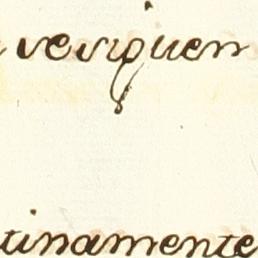 veriguen
tinamente